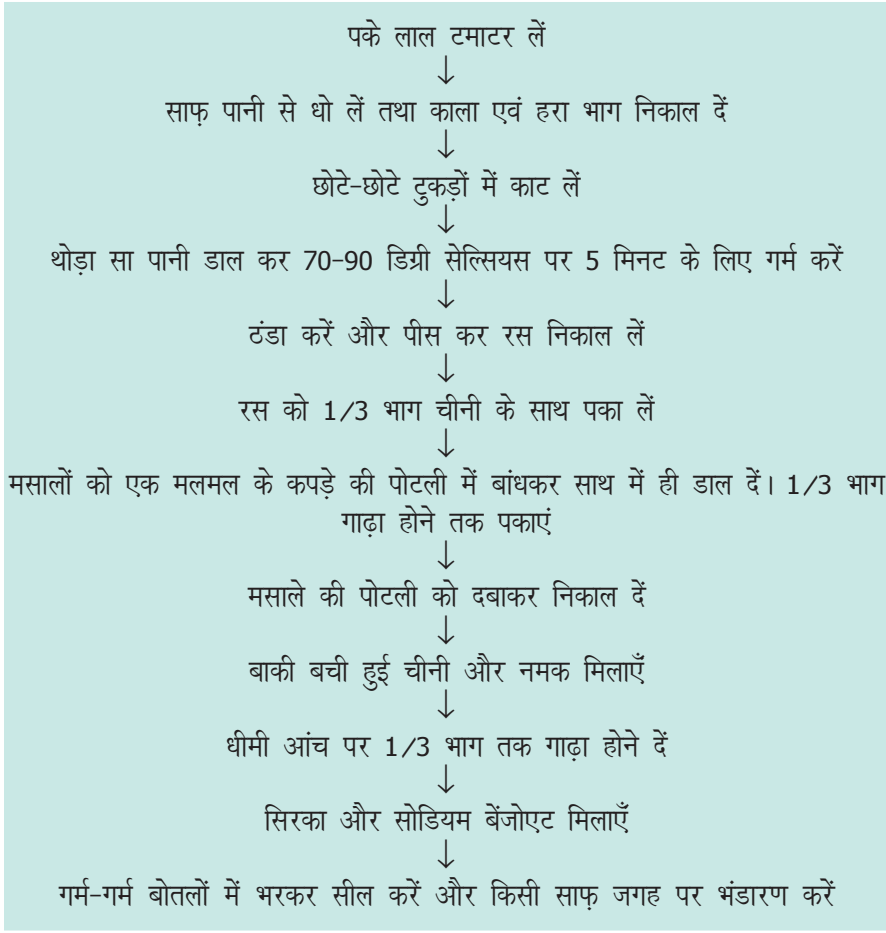 पके लाल टमाटर लें
↓
साफ़ पानी से धो लें तथा काला एवं हरा भाग निकाल दें
↓
छोटे-छोटे टुकड़ों में काट लें
↓
थोड़ा सा पानी डाल कर 70-90 डिग्री सेल्सियस पर 5 मिनट के लिए गर्म करें
↓
ठंडा करें और पीस कर रस निकाल लें
↓
रस को 1/3 भाग चीनी के साथ पका लें
↓
मसालों को एक मलमल के कपड़े की पोटली में बांधकर साथ में ही डाल दें। 1/3 भाग
गाढ़ा होने तक पकाएं
↓
मसाले की पोटली को दबाकर निकाल दें
↓
बाकी बची हुई चीनी और नमक मिलाएँ
↓
धीमी आंच पर 1/3 भाग तक गाढ़ा होने दें
↓
सिरका और सोडियम बेंजोएट मिलाएँ
↓
गर्म-गर्म बोतलों में भरकर सील करें और किसी साफ़ जगह पर भंडारण करें